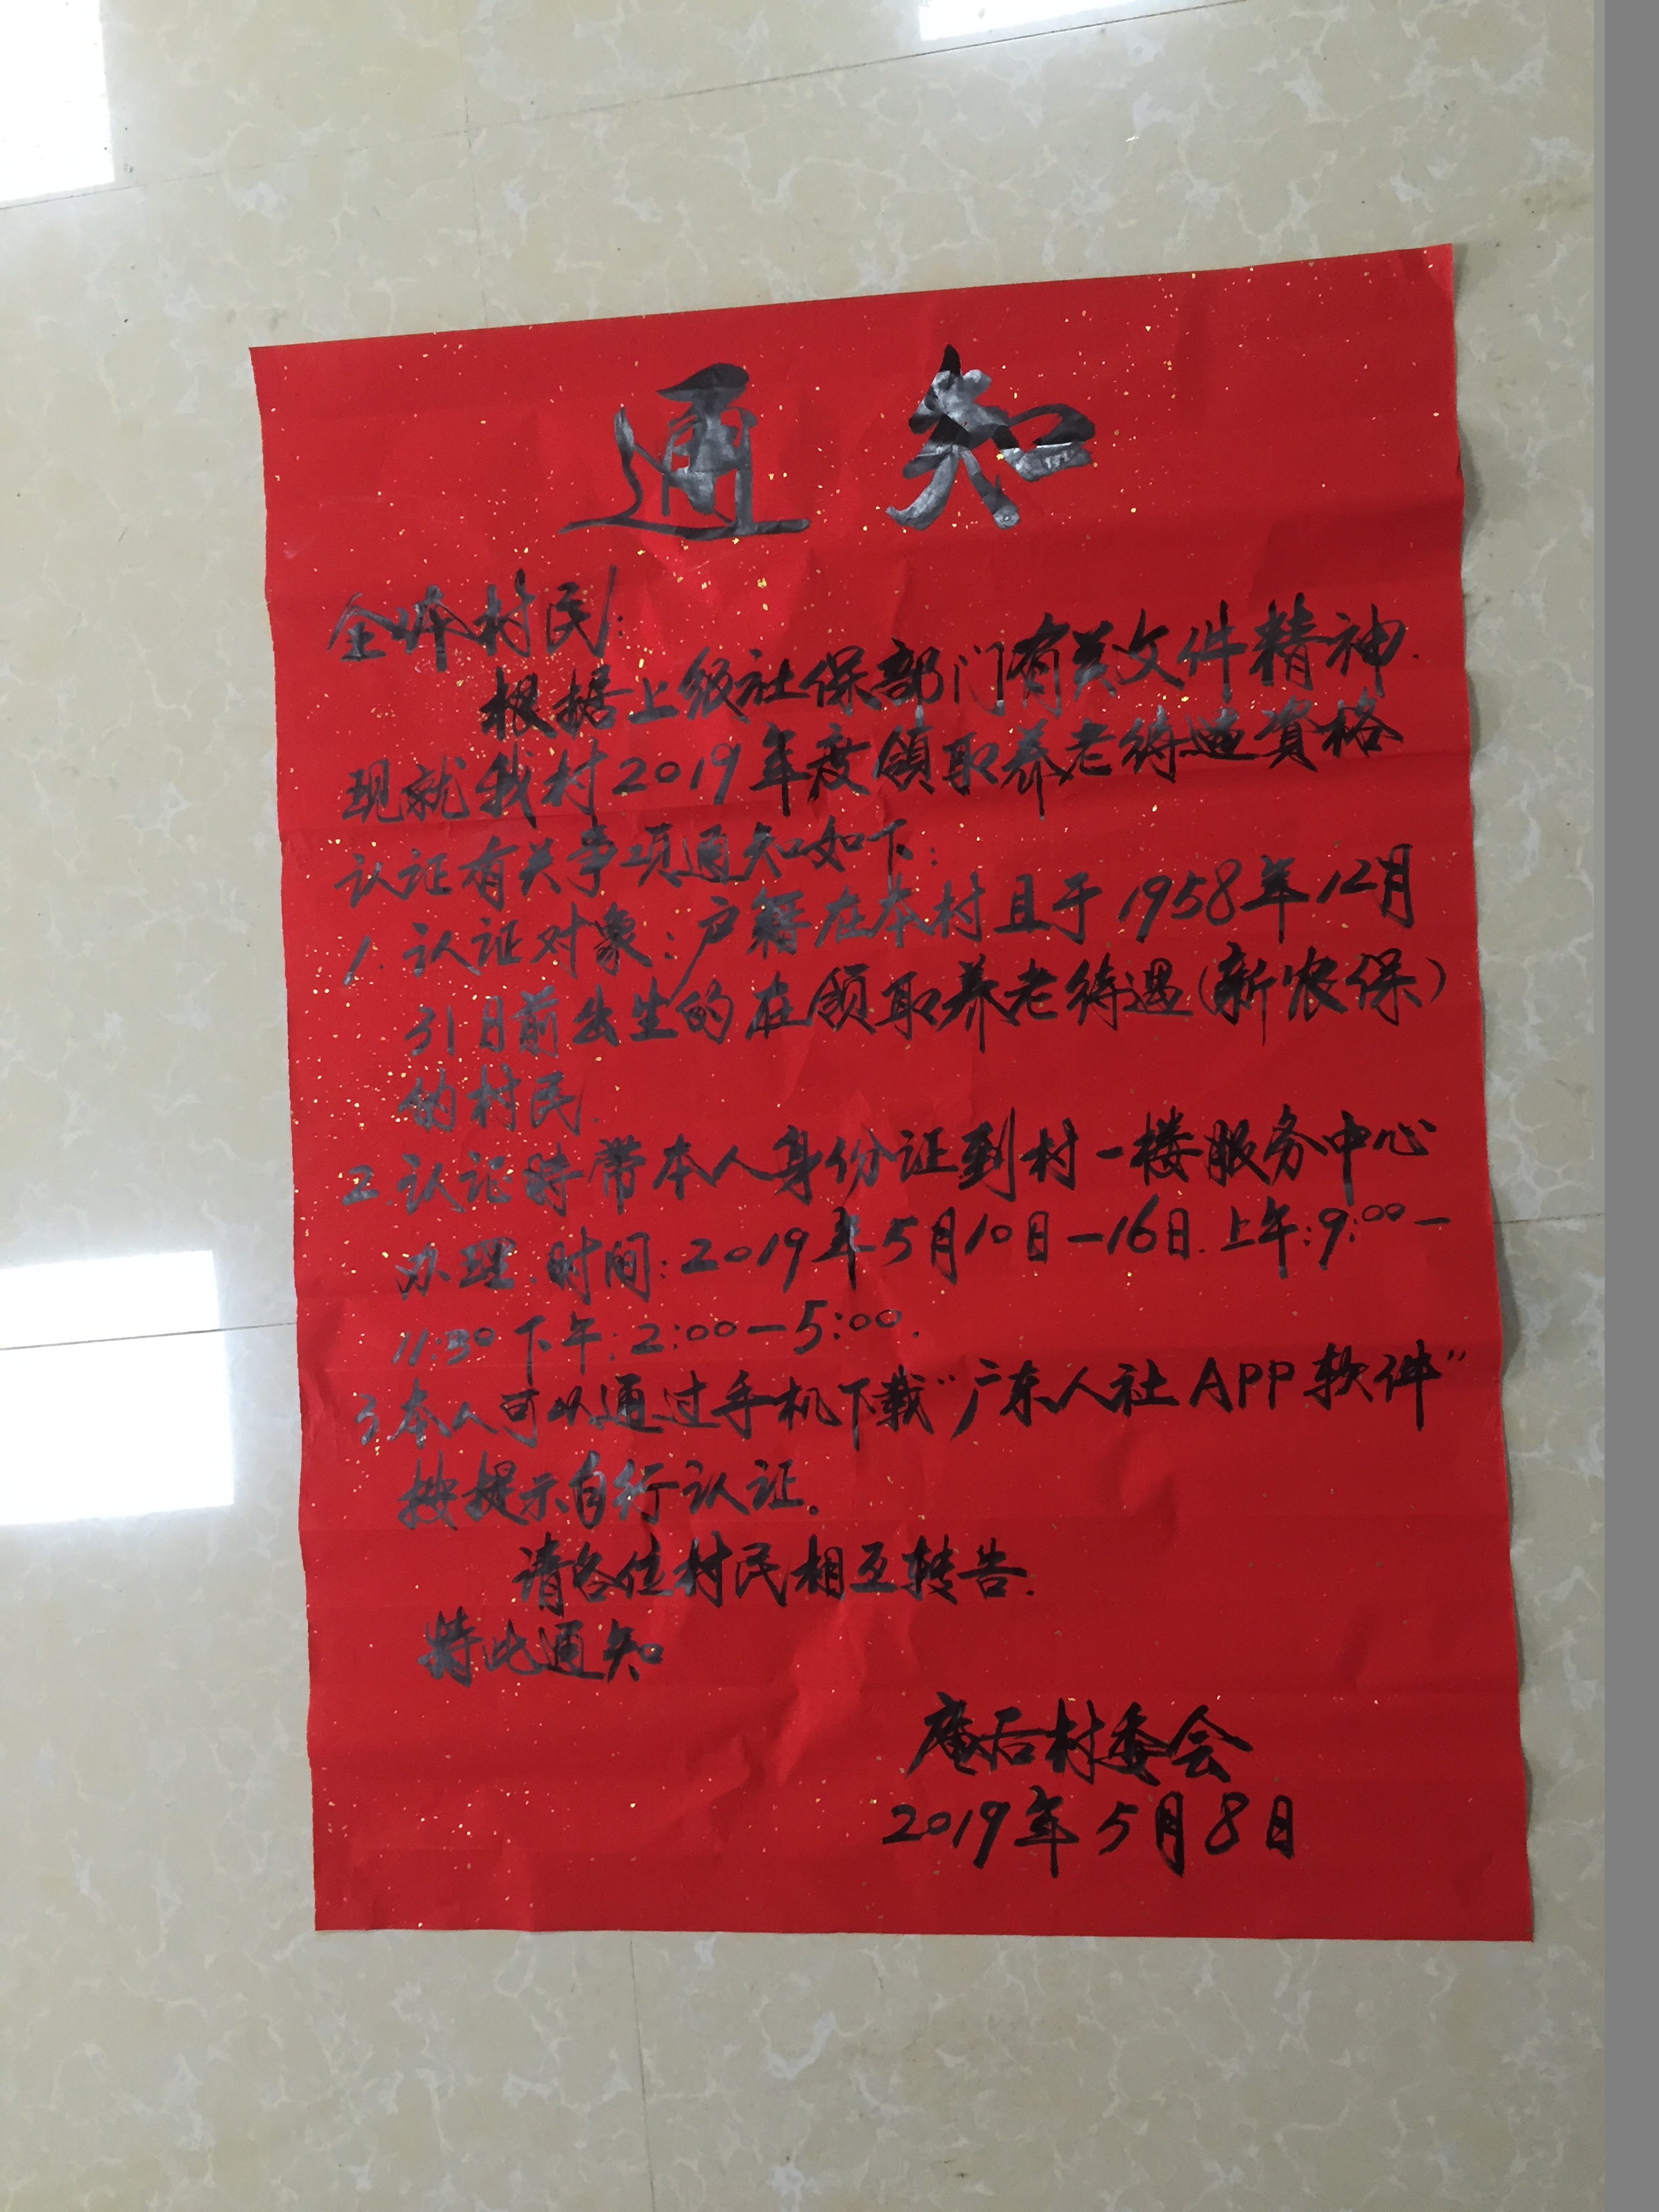 通知
全体村民:
根据上级社保部门有关文件精神.
现就我村2019年度領取养老待遇資格
认证有关事项通知如下:
1.认证对象:户籍在本村且于1958年12月
31日前出生的在领取养老待遇(新农保)
的村民.
2.认证时带本人身份证到村一楼服务中心
办理.时间:2019年5月10日—16日.上午:9:00—
11:30下午:2:00—5:00.
3.本人可以通过手机下载"广东人社APP软件"
按提示自行认证。
请各位村民相互转告.
特此通知
庵后村委会
2019年5月8日